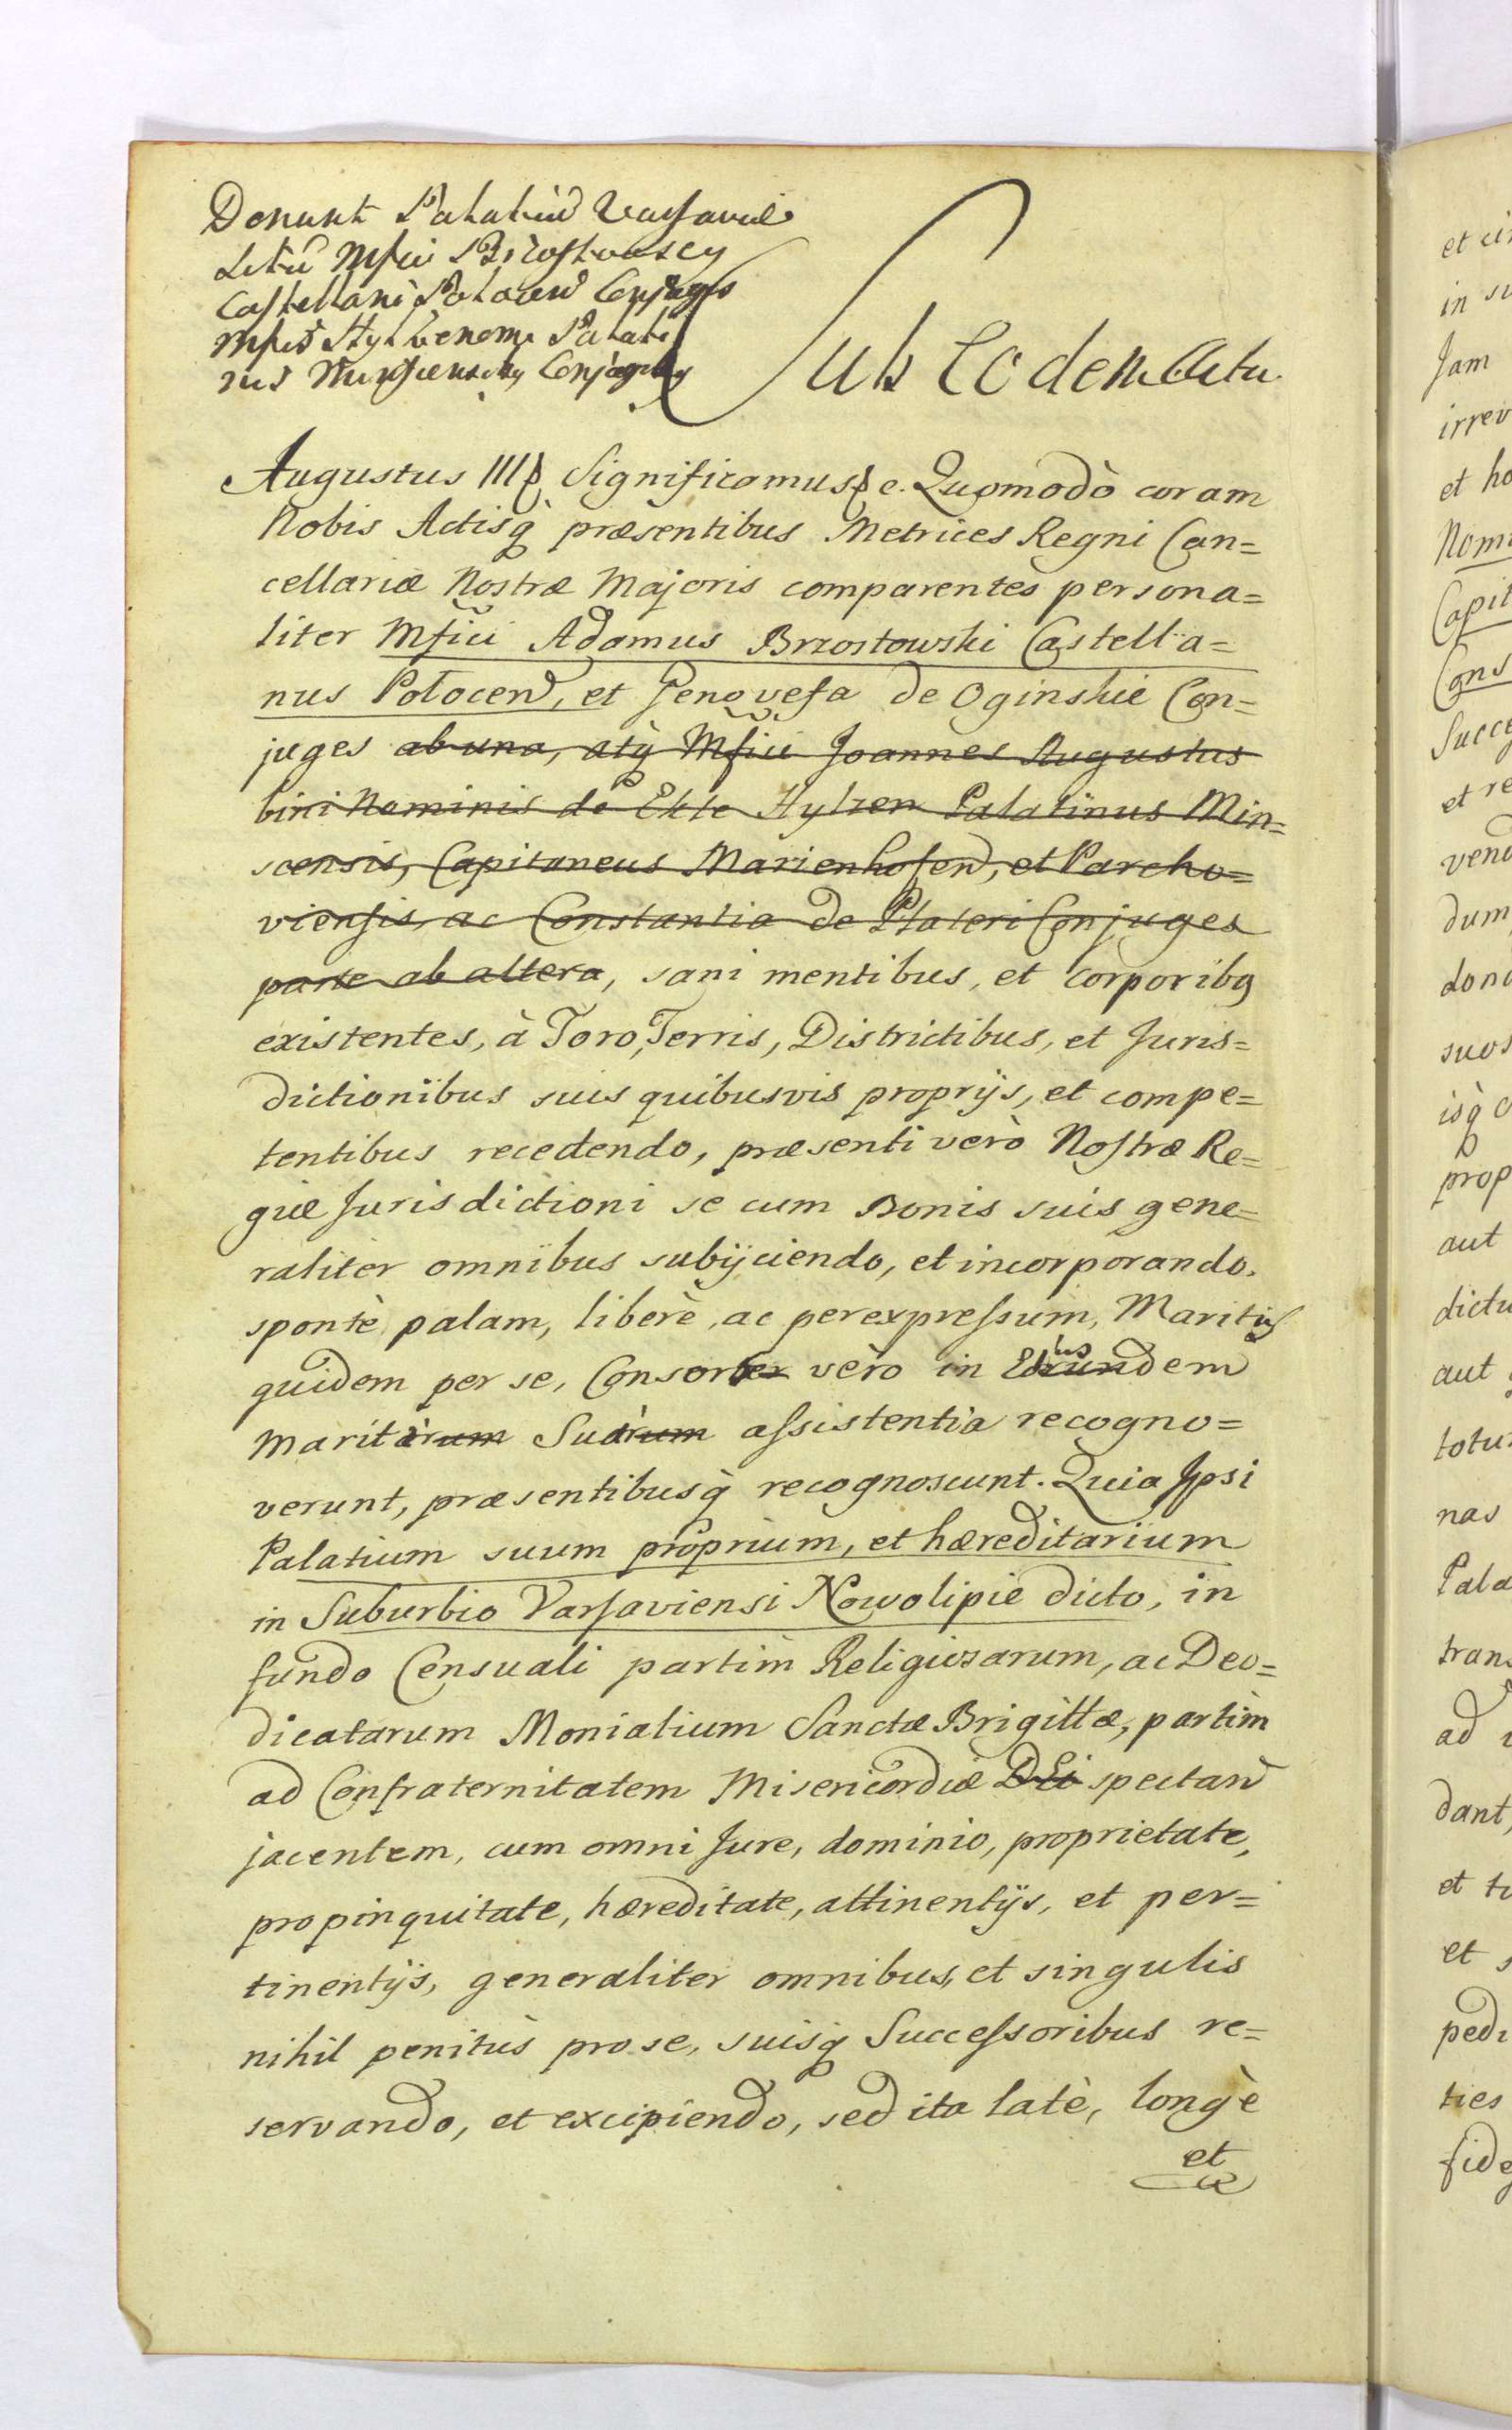 Donant Palatiū Varsaviæ
Mfici Brzostowscy
Castellani Polocen Conjuges
Mfcis Hylzenom Palati
nis Conjugibus
Sub Eodem Actu
Augustus III Significamus &c. Quomodò coram
Nobis Actisq̀ præsentibus Metrices Regni Can=
cellariæ Nostræ Majoris comparentes persona=
liter Mfici Adamus Brzostowski Castella=
nus Polocen, et Genovefa de Oginskie Con=
juges ab una, atq̀ Mfici Joannes Augustus
bini Nominis de Ekle Hylzen Palatinus Min=
scensis, Capitaneus Marienhofen, et Parcho=
viensis, ac Constantia de Plateri Conjuges
parte ab altera, sani mentibus, et corporibq
existentes, à Foro, Terris, Districtibus, et Juris=
dictionibus suis quibusvis proprijs, et compe=
tentibus recedendo, præsenti verò Nostræ Re=
giæ Jurisdictioni se cum Bonis suis gene=
raliter omnibus subijciendo, et incorporando.
spontè palam, liberè, ac per expressum, Maritus
quidem per se, Consorter vèro in Edrundem
Maritàrum Suàrum assistentia recogno=
verunt, præsentibusq̀ recognoscunt. Quia Ipsi
Palatium suum proprium, et hæreditarium
in Suburbio Varsaviensi Nowolipie dicto, in
fundo Censuali partim Religiosarum, ac Deo=
dicatarum Monialium Sanctæ Brigittæ, partìm
ad Confraternitatem Misericordiæ DEi spectan
jacentem, cum omni Jure, dominio, proprietate,
propinquitate, hæreditate, attinentijs, et per=
tinentijs, generaliter omnibus, et singulis
nihil penitùs pro se, suisq̀ Successoribus re=
servando, et excipiendo, sed ita latè, longè
et
et
in
Jam
irrev
et ho
Nomi
Capit
Cons
Succe
et re
vend
dum
dona
suos
isq̀
prop
aut
dictu
aut
totu
nas
Pala
trans
ad
dant,
et
et
pedi
ties
fide